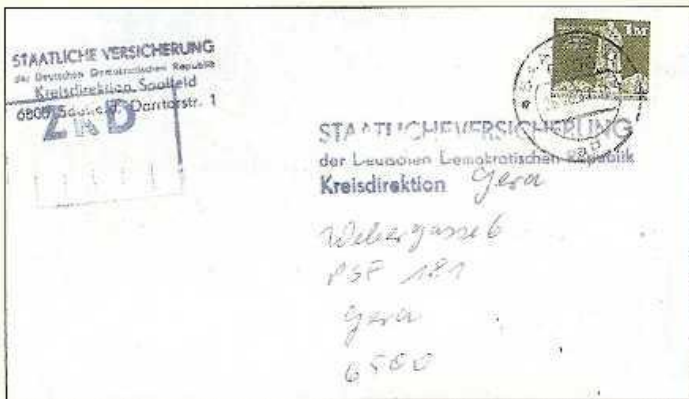 STAATLICHE VERSICHERUNG
der Deutschen Demokratischen Republik
Kreisdirektion Saalfeld
6800 Saalfeld, Darrtorstr. 1
ZKD
1 M
STAATLICHE VERSICHERUNG
der Deutschen Demokratischen Republik
Kreisdirektion Gera
Webergasse 6
PSF 181
Gera
6500